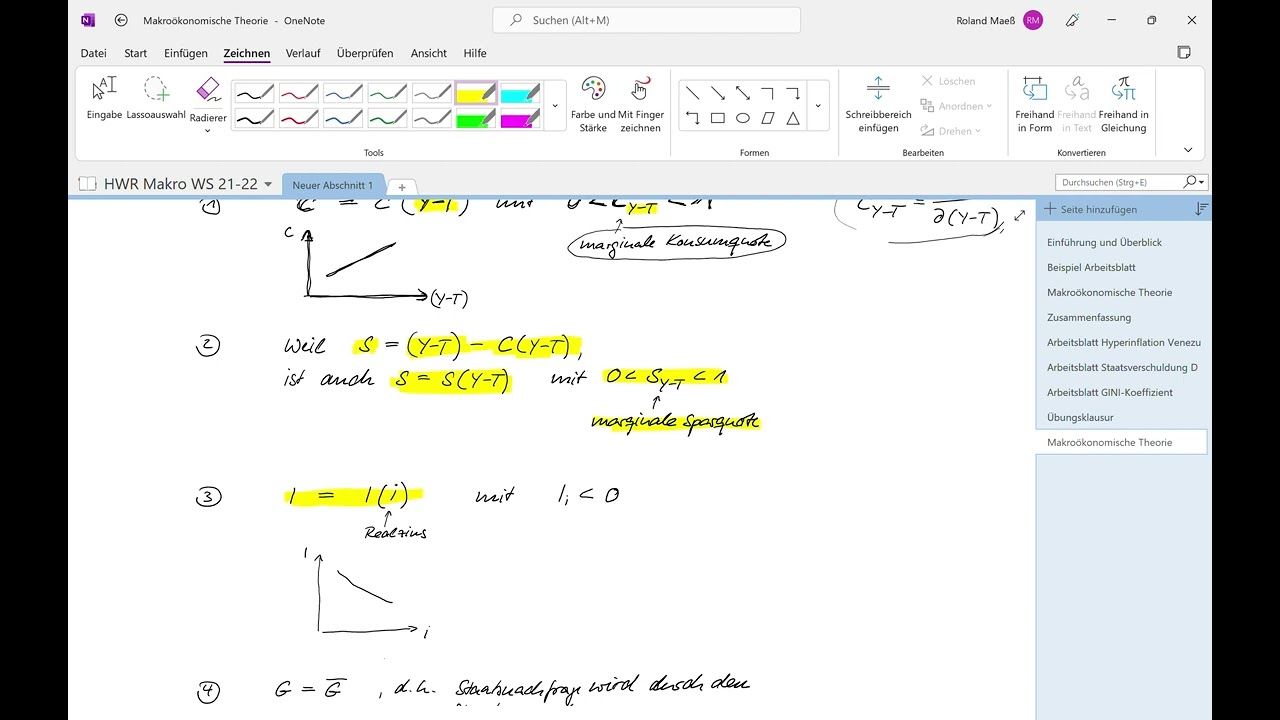 Makroökonomische Theorie - OneNote
Suchen (Alt+M)
Roland Maeß RM
Datei Start Einfügen Zeichnen Verlauf Überprüfen Ansicht Hilfe
Eingabe Lassoauswahl Radierer
Farbe und Stärke
Mit Finger zeichnen
Schreibbereich einfügen
Löschen
Anordnen
Drehen
Freihand in Form
Freihand in Text
Freihand in Gleichung
Tools Formen Bearbeiten Konvertieren
HWR Makro WS 21-22 Neuer Abschnitt 1
Durchsuchen (Strg+E)
Seite hinzufügen
Einführung und Überblick
Beispiel Arbeitsblatt
Makroökonomische Theorie
Zusammenfassung
Arbeitsblatt Hyperinflation Venezu
Arbeitsblatt Staatsverschuldung D
Arbeitsblatt GINI-Koeffizient
Übungsklausur
Makroökonomische Theorie
① C = C (Y-T) mit 0 < C_Y-T < 1
C_Y-T = ∂(Y-T)
marginale Konsumquote
C
(Y-T)
② Weil S = (Y-T) - C(Y-T),
ist auch S = S(Y-T) mit 0 < S_Y-T < 1
marginale Sparquote
③ I = I(i) mit I_i < 0
Realzins
I
i
④ G = G̅, d.h. Staatsnachfrage wird durch den